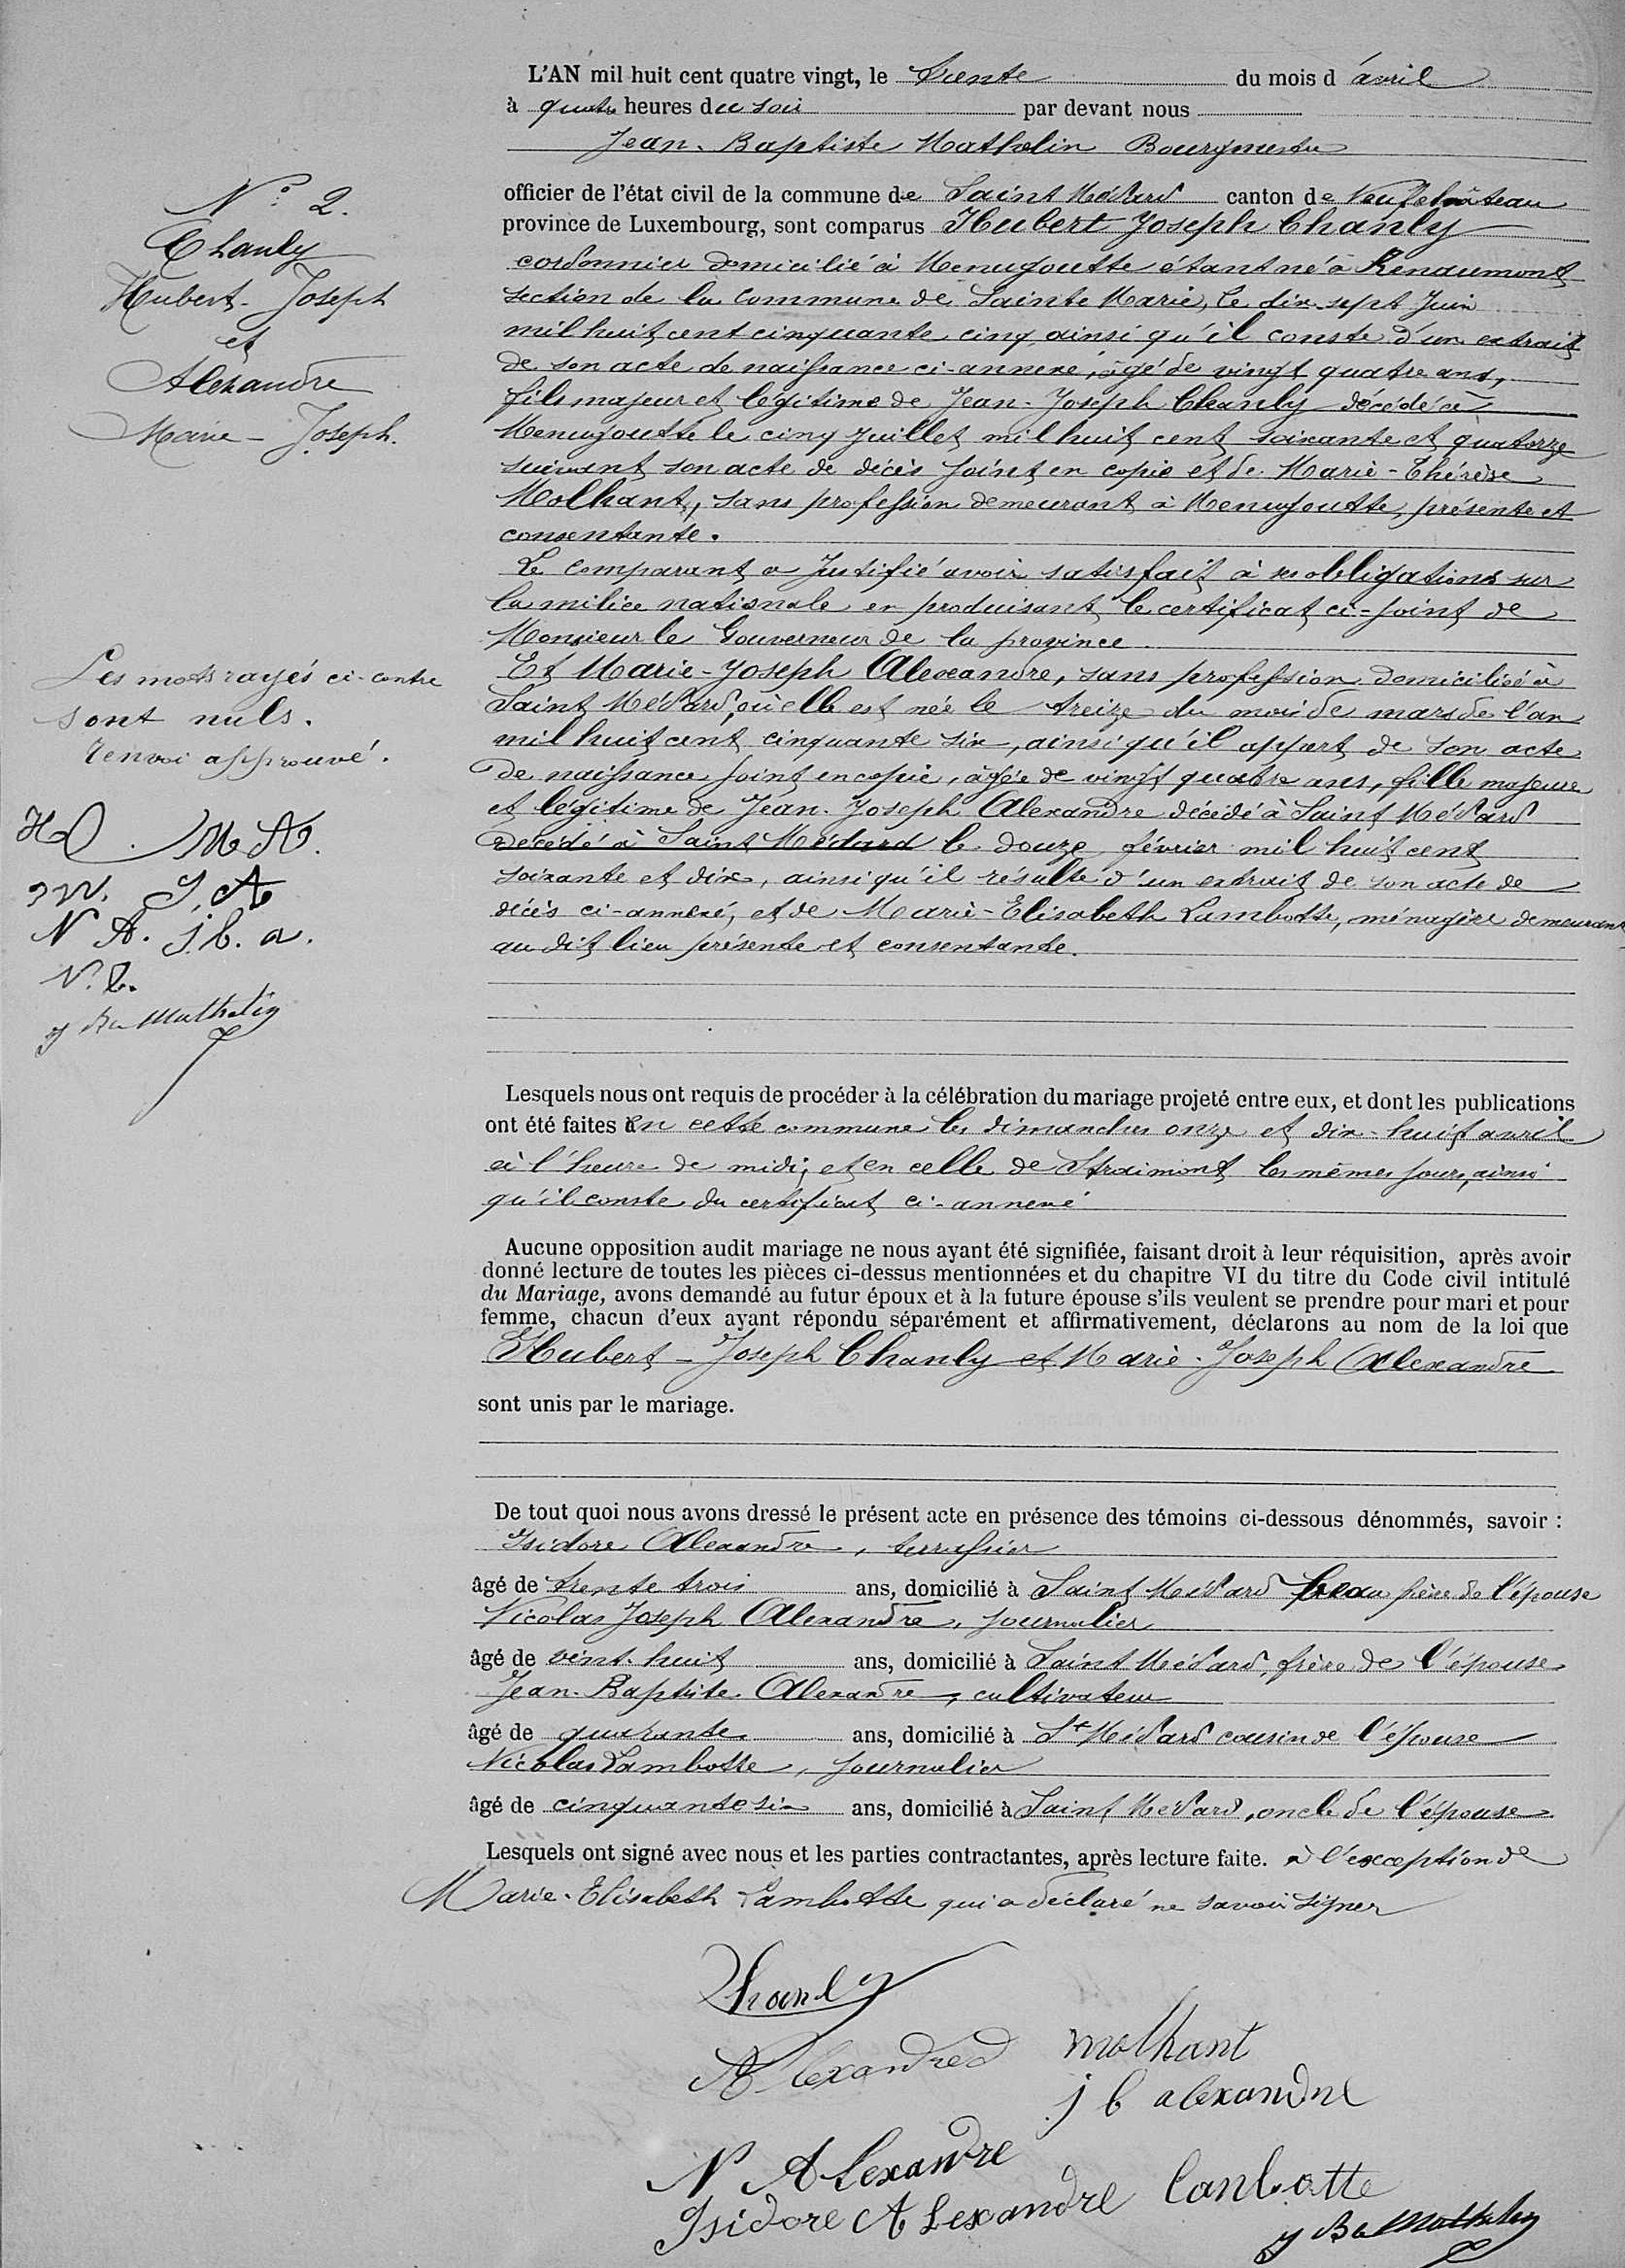 L'AN mil huit cent quatre vingt, le trente du mois d'avril
à quatre heures du soir par devant nous
Jean-Baptiste Mathelin Bourgmestre
officier de l'état civil de la commune de Saint Médard canton de Neufchâteau
province de Luxembourg, sont comparus Hubert Joseph Chanly
cordonnier domicilié à Menugoutte étant né à Renaumont
section de la commune de Sainte Marie, le dix-sept Juin
mil huit cent cinquante cinq ainsi qu'il conste d'un extrait
de son acte de naissance ci-annexé, âgé de vingt quatre ans,
fils majeur et légitime de Jean-Joseph Chanly décédé à
Menugoutte le cinq juillet mil huit cent soixante et quatorze
suivant son acte de décès joint en copie et de Marie-Thérèse
Molhant, sans profession demeurant à Menugoutte, présente et
consentante.
Le comparant a justifié avoir satisfait à ses obligations sur
la milice nationale en produisant le certificat ci-joint de
Monsieur le Gouverneur de la province.
Et Marie-Joseph Alexandre, sans profession domiciliée à
Saint Médard, où elle est née le treize du mois de mars de l'an
mil huit cent cinquante six, ainsi qu'il appert de son acte
de naissance joint en copie, âgée de vingt quatre ans, fille majeure
et légitime de Jean-Joseph Alexandre décédé à Saint Médard
décédé à Saint Médard le douze février mil huit cent
soixante et dix, ainsi qu'il résulte d'un extrait de son acte de
décès ci-annexé, et de Marie-Elisabeth Lambotte, ménagère demeurant
au dit lieu présente et consentante.
N° 2.
Chanly
Hubert-Joseph
et
Alexandre
Marie-Joseph.
Les mots rayés ci-contre
sont nuls.
renvoi approuvé.
M A.
J. A
N A. j. b. a.
N. L.
J Bte Mathelin
Lesquels nous ont requis de procéder à la célébration du mariage projeté entre eux, et dont les publications
ont été faites en cette commune les dimanches onze et dix-huit avril
à l'heure de midi, et en celle de Straimont les mêmes jours, ainsi
qu'il conste du certificat ci-annexé
Aucune opposition audit mariage ne nous ayant été signifiée, faisant droit à leur réquisition, après avoir
donné lecture de toutes les pièces ci-dessus mentionnées et du chapitre VI du titre du Code civil intitulé
du Mariage, avons demandé au futur époux et à la future épouse s'ils veulent se prendre pour mari et pour
femme, chacun d'eux ayant répondu séparément et affirmativement, déclarons au nom de la loi que
Hubert-Joseph Chanly et Marie-Joseph Alexandre
sont unis par le mariage.
De tout quoi nous avons dressé le présent acte en présence des témoins ci-dessous dénommés, savoir :
Isidore Alexandre, terrassier
âgé de trente trois ans, domicilié à Saint Médard frère de l'épouse
Nicolas Joseph Alexandre, journalier
âgé de vint-huit ans, domicilié à Saint Médard, frère de l'épouse
Jean-Baptiste Alexandre, cultivateur
âgé de quarante ans, domicilié à St Médard cousin de l'épouse
Nicolas Lambotte, journalier
âgé de cinquante six ans, domicilié à Saint Médard, oncle de l'épouse
Lesquels ont signé avec nous et les parties contractantes, après lecture faite. à l'exception de
Marie-Elisabeth Lambotte qui a déclaré ne savoir signer
Chanly
Alexandre
molhant
j b alexandre
N Alexandre
Isidore Alexandre
Lanbotte
J Bte Mathelin